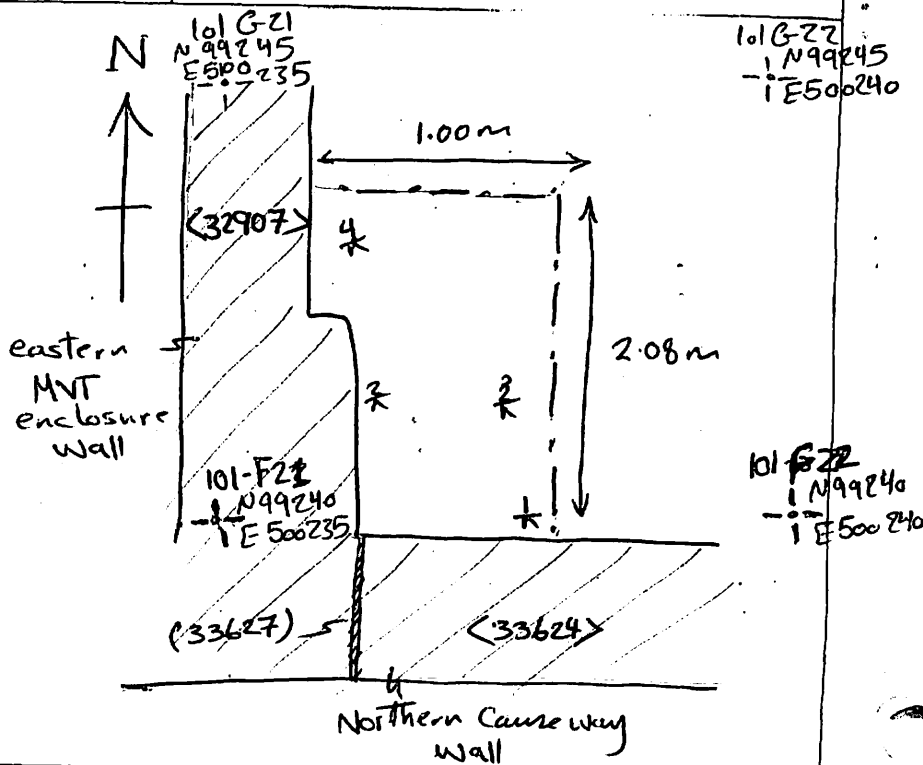 101 G-21
N 99245
E500235
101 G-22
N99245
E500240
N
1.00m
<32907>
4
eastern
MVT
enclosure
wall
2.08m
2
3
101-F21
N99240
E500235
1
N99240
E500240
(33627)
<33624>
Northern Causeway
Wall